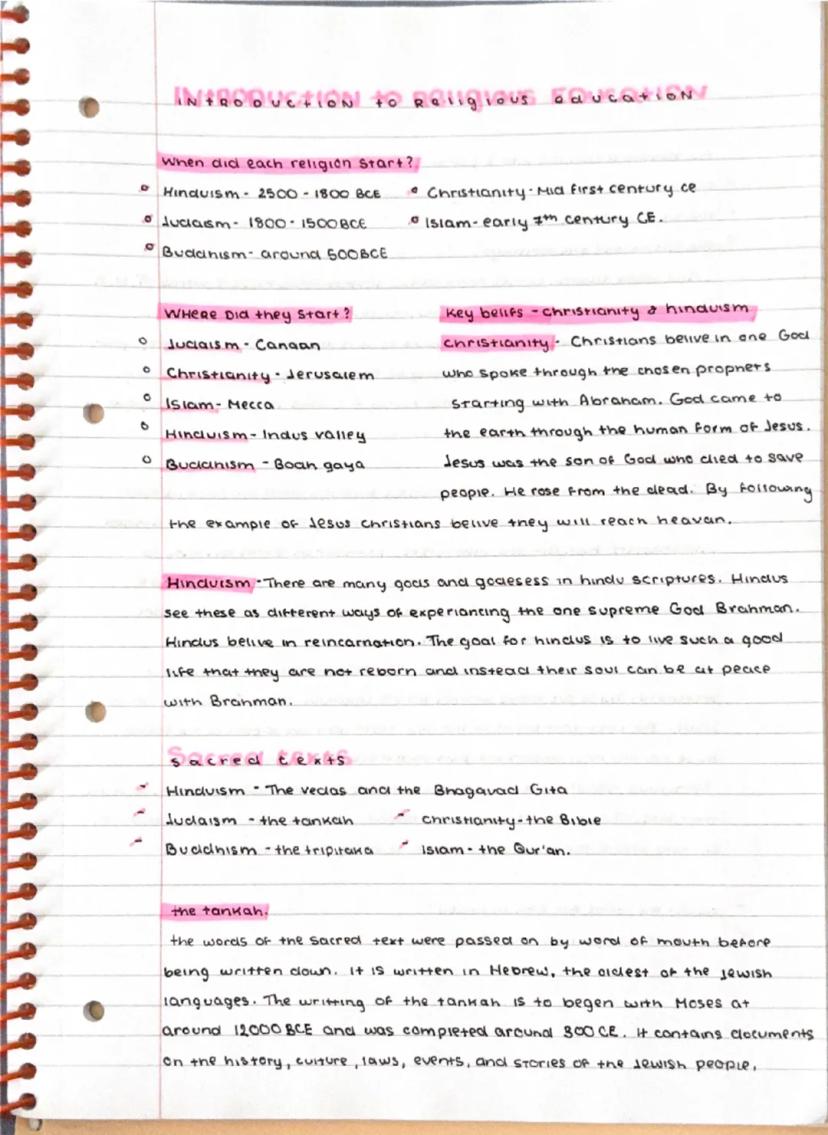 INTRODUCTION to Religious education
When did each religion start?
Hinduism - 2500 - 1800 BCE
Christianity - Mid first century ce
Judaism - 1800 - 1500 BCE
Islam - early 7th century CE.
Buddhism - around 500 BCE
Where Did they start?
Judaism - Canaan
Christianity - Jerusalem
Islam - Mecca
Hinduism - Indus valley
Buddhism - Boah gaya
Key beliefs - christianity & hinduism
christianity - Christians belive in one God
who spoke through the chosen prophets
starting with Abraham. God came to
the earth through the human form of Jesus.
Jesus was the son of God who died to save
people. He rose from the dead. By following
the example of Jesus christians belive they will reach heavan.
Hinduism - There are many gods and godesess in hindu scriptures. Hindus
see these as different ways of experiancing the one supreme God Brahman.
Hindus belive in reincarnation. The goal for hindus is to live such a good
life that they are not reborn and instead their soul can be at peace
with Brahman.
sacred texts
Hinduism - The vedas and the Bhagavad Gita
Judaism - the tankah
Christianity - the Bible
Buddhism - the tripitaka
Islam - the Qur'an.
the tankah.
the words of the sacred text were passed on by word of mouth before
being written down. It is written in Hebrew, the oldest of the Jewish
languages. The writting of the tankah is to begen with Moses at
around 12000 BCE and was completed around 300 CE. It contains documents
on the history, culture, laws, events, and stories of the Jewish people.